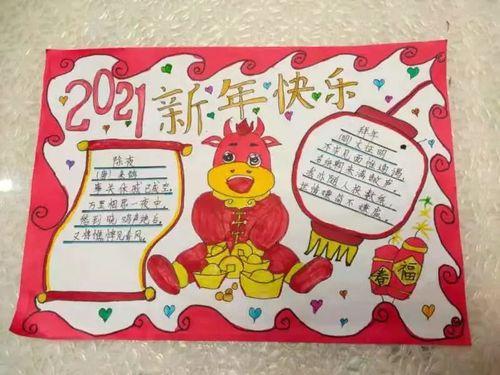 2021新年快乐
除夜
(唐) 来鹄
事关休戚已成空,
万里相思一夜中。
愁到晓鸡声绝后,
又将憔悴见春风。
拜年
(明) 文征明
不求见面惟通谒,
名纸朝来满敝庐。
我亦随人投数纸,
世情嫌简不嫌虚。
春 福